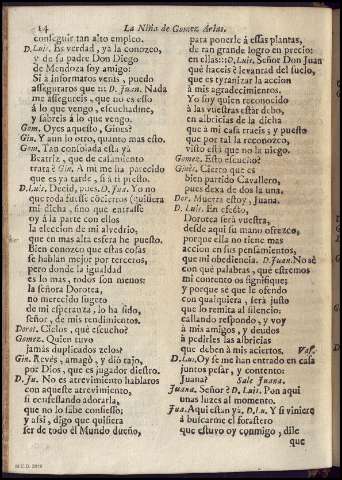 14 La Niña de Gomez Arias.
conseguir tan alto empleo.
D. Luis. Es verdad, ya la conozco,
y de su padre Don Diego
de Mendoza soy amigo:
Si à informaros venis, puedo
asseguraros que ::: D. Juan. Nada
me assegureis, que no es esso
à lo que vengo, escuchadme,
y sabreis à lo que vengo.
Gom. Oyes aquesto, Ginès?
Gin. Y aun lo otro, quanto mas esto.
Gom. Tan consolada esta
Beatriz, que de casamiento
trata? Gin. A mi me ha parecido
que es ya tarde, si à ti presto.
D. Luis. Decid, pues. D. Jua. Yo no
que toda fuesse cōciertos quisiera
mi dicha, sino que entrasse
oy à la parte con ellos
la eleccion de mi alvedrio,
que en mas alta esfera he puesto.
Bien conozco que estas cosas
se hablan mejor por terceros,
pero donde la igualdad
es lo mas, todos son menos:
la señora Dorotea,
no merecido sugeto
de mi esperanza, lo ha sido,
señor, de mis rendimientos.
Dorot. Cielos, què escucho?
Gomez. Quien tuvo
jamàs duplicados zelos?
Gin. Revès, amagò, y diò tajo,
por Dios, que es jugador diestro.
D. Ju. No es atrevimiento hablaros
con aqueste atrevimiento,
si confessando adorarla,
que no lo sabe confiesso;
y assi, digo que quisiera
ser de todo el Mundo dueño,
para ponerle à essas plantas,
de tan grande logro en precio:
en ellas::: D. Luis. Señor Don Juan
què haceis? levantad del suelo,
que es tyranizar la accion
à mis agradecimientos.
Yo soy quien reconocido
à las vuestras estàr debo,
en albricias de la dicha
que à mi casa traeis; y puesto
que por tal la reconozco,
visto està que no la niego.
Gomez. Esto escucho?
Ginès. Cierto que es
bien partido Cavallero,
pues dexa de dos la una.
Dor. Muerta estoy, Juana.
D. Luis. En efecto,
Dorotea serà vuestra,
desde aqui su mano ofrezco,
porque ella no tiene mas
accion en sus pensamientos,
que mi obediencia. D. Juan. No sè
con què palabras, què estremos
mi contento os signifique;
y porque sè que le ofendo
con qualquiera, serà justo
que lo remita al silencio:
callando respondo, y voy
à mis amigos, y deudos
à pedirles las albricias
que deben à mis aciertos. Vas.
D. Lu. Oy se me han entrado en casa
juntos pesar, y contento:
Juana? Sale Juana.
Juana. Señor? D. Luis. Pon aqui
unas luzes al momento.
Jua. Aqui estàn yà. D. Lu. Y si viniere
à buscarme el forastero
que estuvo oy conmigo, dile
que